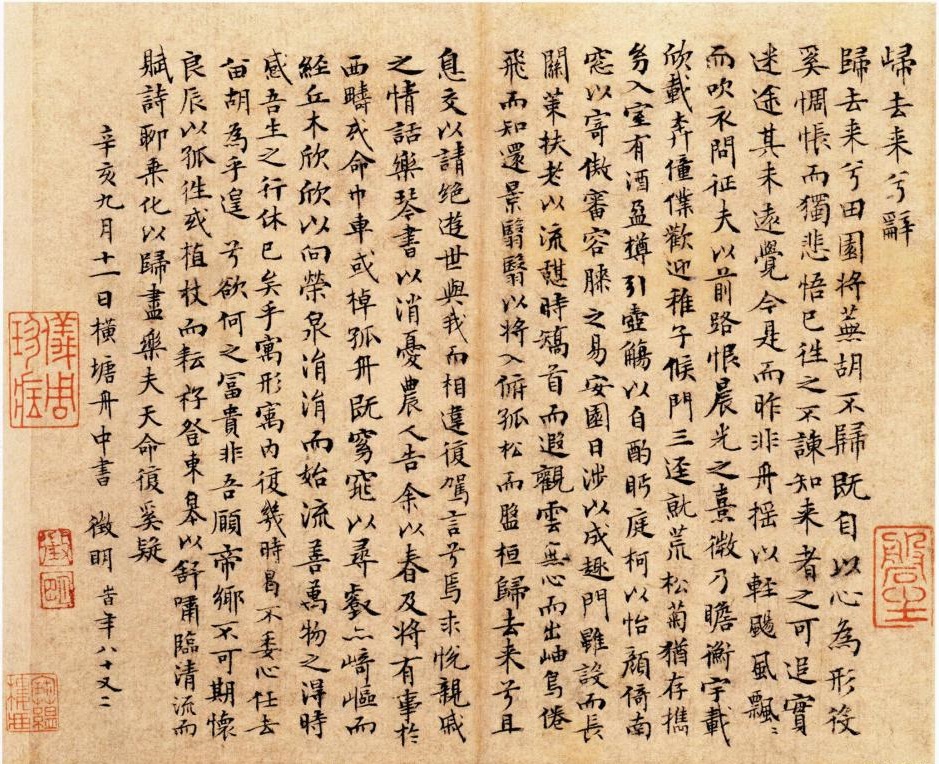 歸去来兮辭
歸去来兮田園将蕪胡不歸既自以心為形役
奚惆悵而獨悲悟已往之不諫知来者之可追實
迷途其未遠覺今是而昨非舟摇以輕颺風飄〻
而吹衣問征夫以前路恨晨光之熹微乃瞻衡宇載
欣載奔僮僕歡迎稚子候門三迳就荒松菊猶存携
㓜入室有酒盈樽引壺觴以自酌眄庭柯以怡顔倚南
窓以寄傲審容膝之易安園日涉以成趣門雖設而長
關策扶老以流憇時矯首而遐觀雲無心而出岫鳥倦
飛而知還景翳翳以将入俯孤松而盤桓歸去来兮且
息交以請絶遊世與我而相違復駕言兮焉求悦親戚
之情話樂琴書以消憂農人告余以春及将有事於
西疇或命巾車或棹孤舟既窈窕以尋壑亦崎嶇而
經丘木欣欣以向榮泉涓涓而始流善萬物之得時
感吾生之行休已矣乎寓形寓内復幾時曷不委心任去
留胡為乎遑 兮欲何之冨貴非吾願帝鄉不可期懷
良辰以孤往或植杖而耘耔登東皋以舒嘯臨清流而
賦詩聊乗化以歸盡樂夫天命復奚疑
辛亥九月十一日横塘舟中書 徵明 旹年八十又二
儀周珍藏
徵明